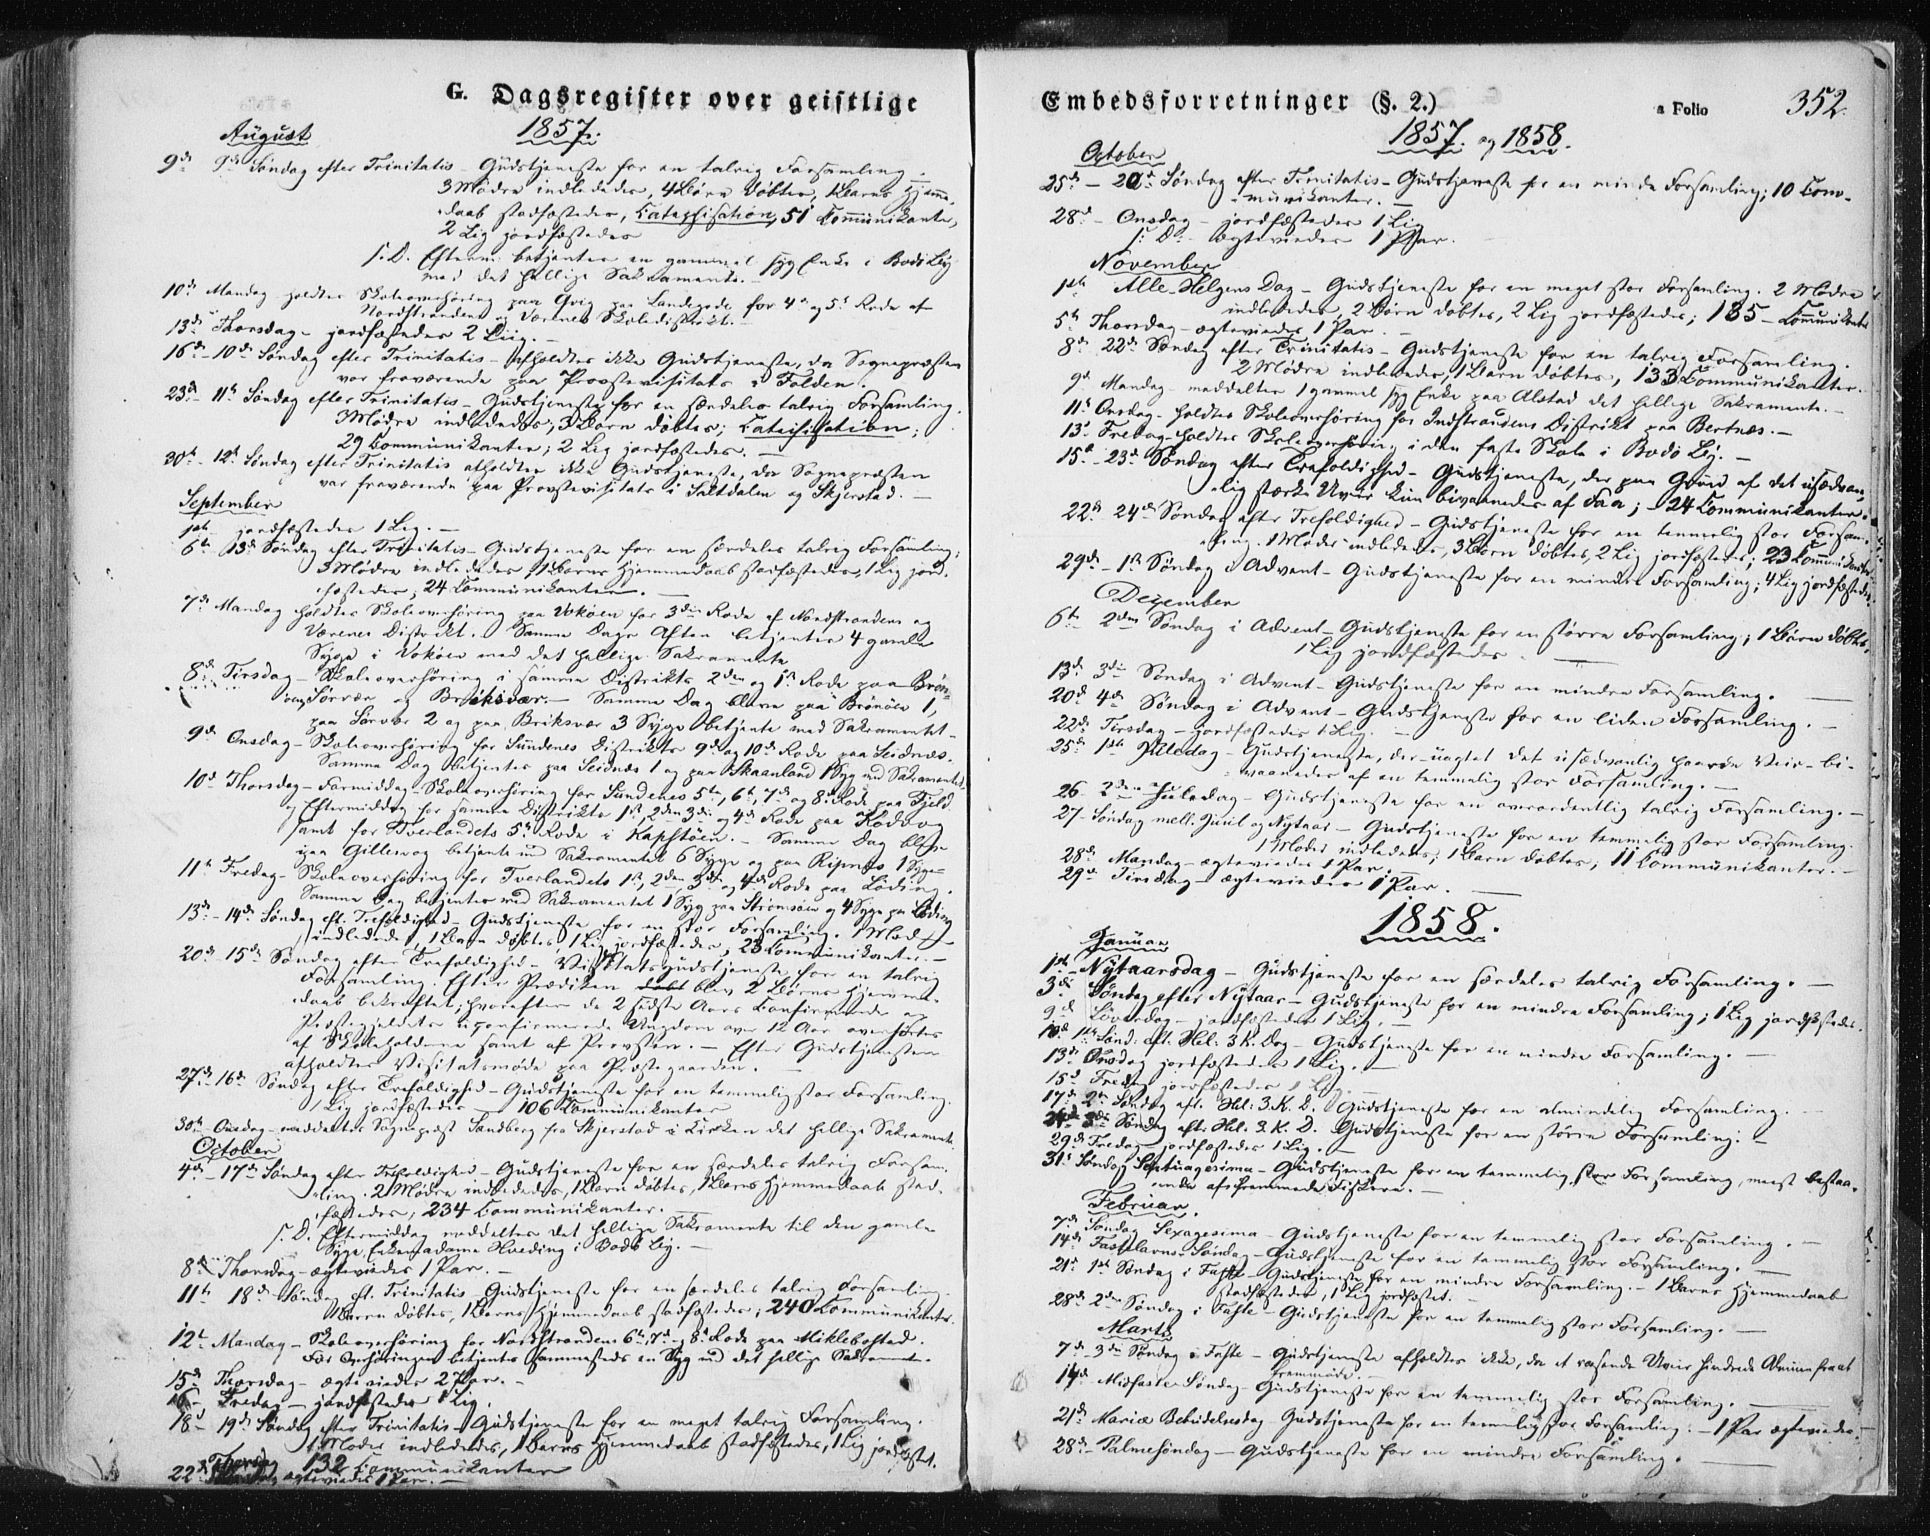 G. Dagsregister over geistlige
August 1857.
9de 9de Søndag efter Trinitatis – Gudstjeneste for en talrig Forsamling.
3 Mødre indlededes, 4 Børn døbtes, 1 Barns Hjemme-
daab stadfæstedes, Catechisation, 51 Communikanter,
2 Lig jordfæstedes
s. D. Efterm: betjentes en gammel syg Enke i Bodø By
med det hellige Sakramente. –
10de Mandag holdtes Skoleoverhøring paa Qvig paa Landegode for 4de og 5te Rode af
Nordstrandens og Værenes Skoledistrikt. –
13de Thorsdag – jordfæstedes 2 Liig. –
16de – 10de Søndag efter Trinitatis – afholdtes ikke Gudstjeneste, da Sognepræsten
var fraværende paa Provstevisitats i Folden.
23de – 11te Søndag efter Trinitatis – Gudstjeneste for en særdeles talrig Forsamling.
3 Mødre indlededes, 3 Børn døbtes; Catechisation;
29 Communikanter; 2 Lig jordfæstedes. –
30te – 12te Søndag efter Trinitatis afholdtes ikke Gudstjeneste, da Sognepræsten
var fraværende paa Provstevisitats i Saltdalen og Skjerstad –
September
1ste jordfæstedes 1 Lig. –
6te 13de Søndag efter Trinitatis – Gudstjeneste for en særdeles talrig Forsamling;
3 Mødre indlededes, 1 Barns Hjemmedaab stadfæstedes, 1 Lig jord-
fæstedes; 24 Communikanter. –
7de Mandag holdtes Skoleoverhøring paa Vokøen for 3die Rode af Nordstrandens og
Værenes Distrikt. Samme Dags Aften betjentes 4 gamle
Syge i Vokøen med det hellige Sakramente
8de Tirsdag – Skoleoverhøring i samme Distrikts 2den og 1ste Rode paa Brøn-
øen, Sørvær og Briksvær. – Samme Dag bleve paa Brønøen 1,
paa Sørvær 2 og paa Briksvær 3 Syge betjente med Sakramentet –
9de Onsdag – Skoleoverhøring for Sundenes Distrikts 9de og 10de Rode paa Seidnæs.
Samme Dag betjentes paa Seidnæs 1 og paa Skaanland 1 Syg med Sakramentet
10de Thorsdag – Formiddag – Skoleoverhøring for Sundenes 5te, 6te, 7de og 8de Rode paa Fjeld
og Eftermiddag for samme Distrikts 1ste, 2den 3die og 4de Rode paa Kodvog
samt for Tverlandets 5te Rode i Kapstøen. – Samme Dag bleve
paa Gillesvog betjente med Sakramentet 6 Syge og paa Ripnæs 1 Syg –
11te Fredag – Skoleoverhøring for Tverlandets 1ste, 2den, 3die og 4de Rode paa Løding.
Samme Dag betjentes med Sakramentet 1 Syg paa Strømsøen og 4 Syge paa Løding
13de – 14de Søndag eft. Trefoldighed – Gudstjeneste for en stor Forsamling. 1 Moder
indlededes, 1 Barn døbtes, 1 Lig jordfæstedes; 28 Communikanter. –
20de 15de Søndag efter Trefoldighed – Visitatsgudstjeneste for en talrig
Forsamling. Efter Prædiken blev 2 Børns Hjemme-
daab bekræftet, hvorefter de 2 sidste Aars Confirmerede og
Præstegjeldets uconfirmerede Ungdom over 12 Aar overhørtes
af Skoleholderne samt af Provsten. – Efter Gudstjenesten
afholdtes Visitatsmøde paa Præstegaarden. –
27de 16de Søndag efter Trefoldighed – Gudstjeneste for en temmelig stor Forsamling.
1 Lig jordfæstedes – 106 Communikanter
30te Onsdag – meddeltes Sognepræst Sandberg fra Skjerstad i Kirken det hellige Sakramente
October
4de – 17de Søndag efter Trefoldighed – Gudstjeneste for en særdeles talrig Forsam-
ling. 2 Mødre indlededes, 1 Barn døbtes, 1 Barns Hjemmedaab stad-
fæstedes, 234 Communikanter. –
s. D. Eftermiddag meddeltes det hellige Sakramente til den gamle
Syge Enkemadame Hveding i Bodø By. –
8de Thorsdag – ægteviedes 1 Par. –
11te 18de Søndag eft. Trinitatis – Gudstjeneste for en særdeles talrig Forsamling.
1 Barn døbtes, 1 Barns Hjemmedaab stadfæstedes; 240 Communikanter.
12te Mandag – Skoleoverhøring for Nordstrandens 6te, 7de og 8de Rode paa Mikkelbostad.
Før Overhøringen betjentes sammesteds en Syg med det hellige Sakramente.
15de Thorsdag – ægteviedes 2 Par. –
16de Fredag – jordfæstedes 1 Lig.
18de – 19de Søndag efter Trinitatis – Gudstjeneste for en meget talrig Forsamling.
1 Moder indlededes, 1 Barns Hjemmedaab stadfæstedes, 1 Lig jordfæstet.
132 Communikanter
22de Thorsdag ægteviedes 1 Par. –
Embedsforretninger (§. 2.) a Folio 352.
1857. og 1858.
October
25de – 20de Søndag efter Trinitatis – Gudstjeneste for en mindre Forsamling; 10 Com-
munikanter. –
28de – Onsdag – jordfæstedes 1 Lig
s. D. – ægteviedes 1 Par.
November
1ste Alle Helgens Dag – Gudstjeneste for en meget stor Forsamling. 2 Mødre
indlededes, 2 Børn døbtes, 2 Lig jordfæstedes; 185 – Communikanter
5te Thorsdag – ægteviedes 1 Par. –
8de 22de Søndag efter Trinitatis – Gudstjeneste for en talrig Forsamling.
2 Mødre indlededes, 1 Barn døbtes, 133 Communikanter.
9de Mandag – meddeltes 1 gammel syg Enke paa Alstad det hellige Sakramente. –
11te Onsdag – holdtes Skoleoverhøring for Indstrandens Distrikt paa Bertnæs. –
13de Fredag – holdtes Skoleoverhøring i den faste Skole i Bodø By. –
15de – 23de Søndag efter Trefoldighed – Gudstjeneste, der paa Grund af det usædvan-
lig stærke Uveir kun bivaanedes af Faa; – 24 Communikanter.
22de 24de Søndag efter Trefoldighed – Gudstjeneste for en temmelig stor Forsam-
ling. 1 Moder indlededes, 3 Børn døbtes, 2 Lig jordfæstedes; 23 Communikanter
29de – 1ste Søndag i Advent – Gudstjeneste for en mindre Forsamling; 4 Lig jordfæstedes.
Dezember
6te – 2den Søndag i Advent – Gudstjeneste for en større Forsamling; 1 Barn døbtes.
1 Lig jordfæstedes. –
13de 3die Søndag i Advent – Gudstjeneste for en mindre Forsamling. –
20de 4de Søndag i Advent – Gudstjeneste for en liden Forsamling. –
22de Tirsdag – jordfæstedes 1 Lig. –
25de 1ste Juledag – Gudstjeneste, der uagtet det usædvanlig haarde Veir bi-
vaanedes af en temmelig stor Forsamling. –
26. 2den Juledag – Gudstjeneste for en overordentlig talrig Forsamling. –
27 – Søndag mell. Juul og Nytaar – Gudstjeneste for en temmelig stor Forsamling.
1 Moder indlededes; 1 Barn døbtes; 11 Communikanter. –
28de Mandag – ægteviedes 1 Par.
29de Tirsdag – ægteviedes 1 Par. –
1858.
Januar
1ste – Nytaarsdag – Gudstjeneste for en særdeles talrig Forsamling. –
3die Søndag efter Nytaar – Gudstjeneste for en mindre Forsamling; 1 Lig jordfæstedes.
9de Løverdag – jordfæstedes 1 Lig. –
10de 1ste Sønd: eft. Hel: 3 K. Dag – Gudstjeneste for en mindre Forsamling. –
13de Onsdag jordfæstedes 1 Lig. –
15de Fredag jordfæstedes 1 Lig.
17de 2den Søndag eft. Hel: 3. K. D. Gudstjeneste for en almindelig Forsamling. –
24de 3die Søndag eft. Hel. 3. K. D. Gudstjeneste for en større Forsamling. –
29de Fredag jordfæstedes 1 Lig. –
31te Søndag Septuagesima – Gudstjeneste for en temmelig stor Forsamling, meest bestaa-
ende af fremmede Fiskere. –
Februar.
7de Søndag Sexagesima – Gudstjeneste for en temmelig stor Forsamling. –
14de Fastelavns Søndag – Gudstjeneste for en temmelig stor Forsamling. –
21de 1ste Søndag i Faste – Gudstjeneste for en mindre Forsamling. – 1 Barns Hjemmedaab
stadfæstedes, 1 Lig jordfæstet. –
28de 2den Søndag i Faste – Gudstjeneste for en temmelig stor Forsamling. –
Marts
7de – 3die Søndag i Faste – Gudstjeneste afholdtes ikke, da et rasende Uveir hindrede Almuen fra at
fremmøde. –
14de Midfaste Søndag – Gudstjeneste for en temmelig stor Forsamling. –
21de Mariæ Bebudelsesdag Gudstjeneste for en temmelig stor Forsamling. – 1 Par ægteviedes. –
28de – Palmesøndag – Gudstjeneste for en mindre Forsamling. –